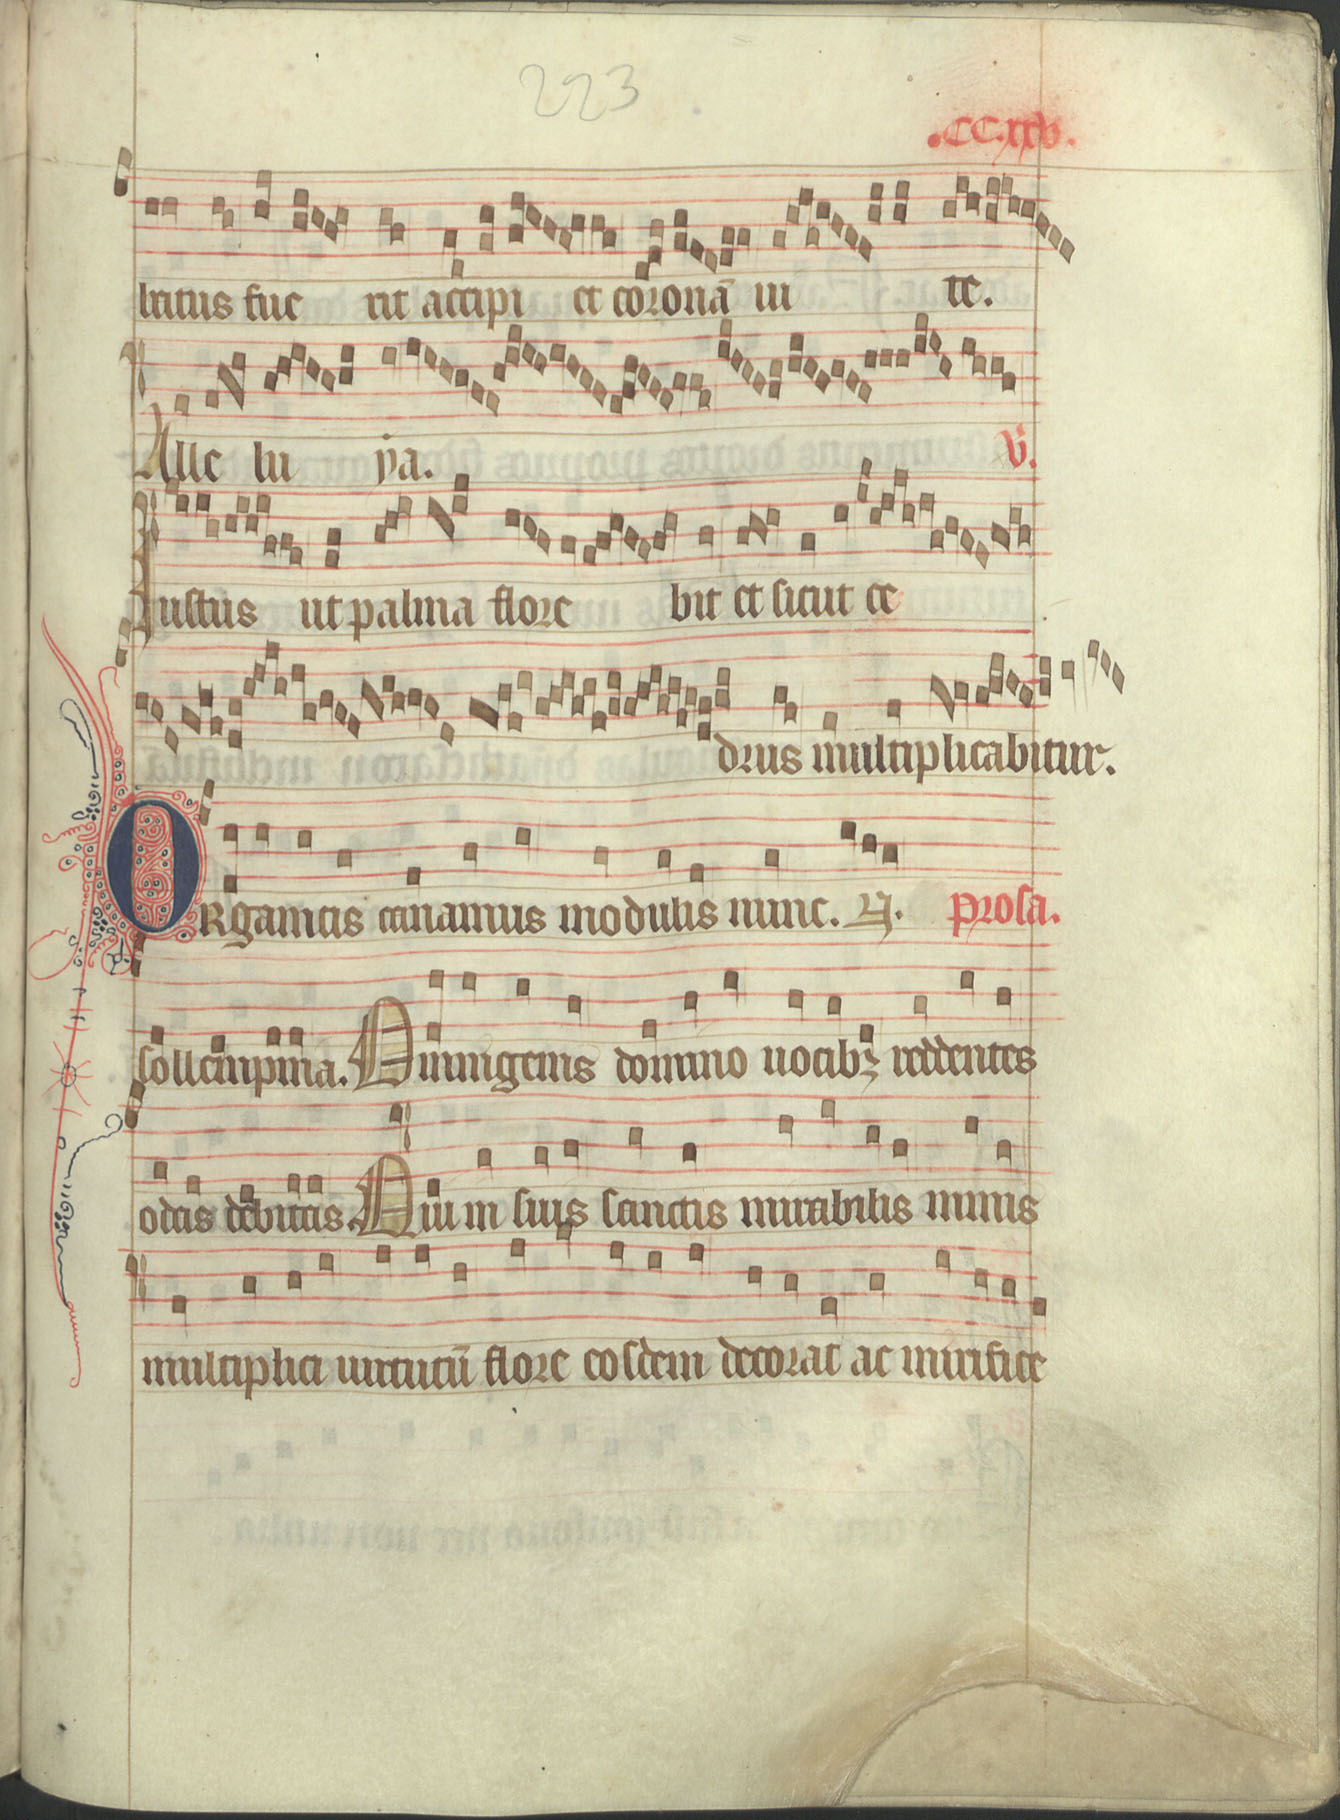 223
.CC.xxv.
batus fue rit accipi et coronā ui te.
Alle lu ya. V.
Iustus ut palma flore bit et sicut ce
drus multiplicabitur.
ORganicis canamus modulis nunc. Prosa.
sollempnia. Omnigenis domino vocibꝫ reddentes
odas debitas. Qui in suis sanctis mirabilis nimis
multiplici uirtutū flore eosdem decorat ac mirifice